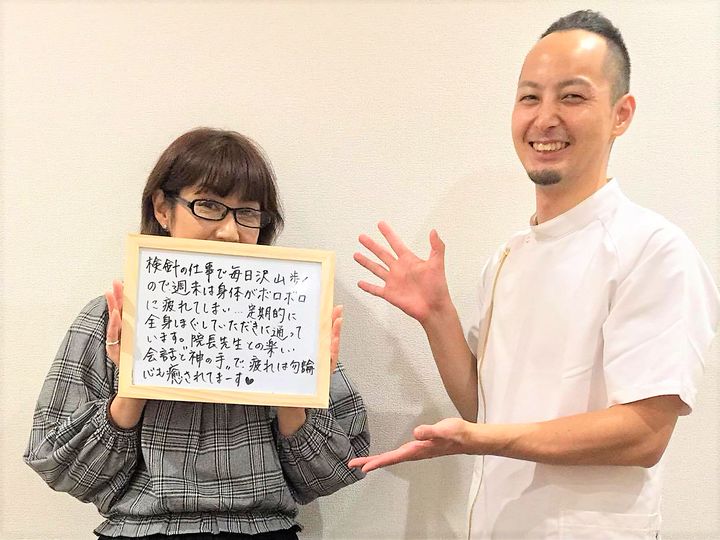 検針の仕事で毎日沢山歩く
ので週末は身体がボロボロ
に疲れてしまい…定期的に
全身ほぐしていただきに通って
います。"院長先生との楽しい
会話と神の手"で疲れは勿論
心も癒されてまーす♥